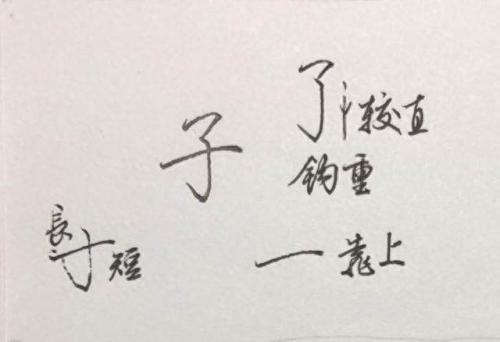 了 丨较直
子
钩重
長 短
一 靠上